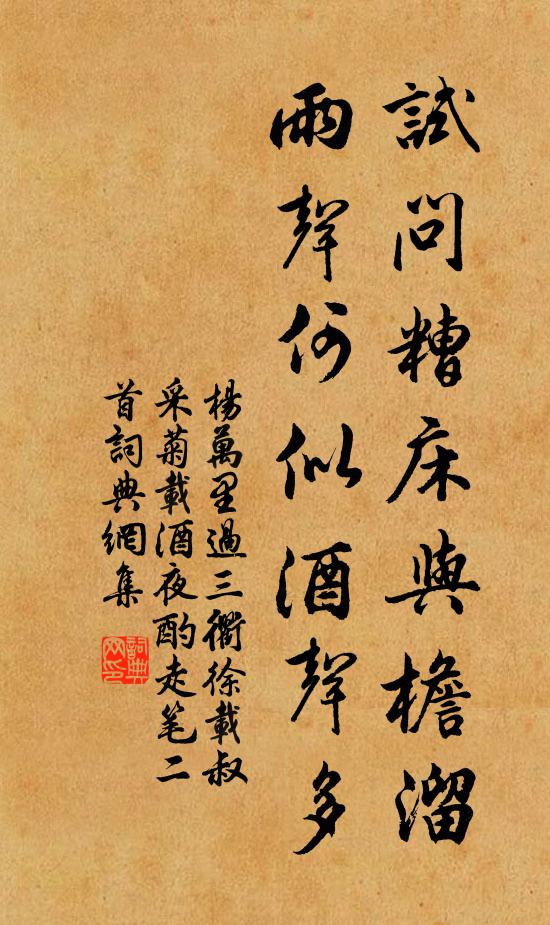 試問糟床與檐溜
雨聲何似酒聲多
楊萬里過三衢徐載叔
采菊載酒夜酌走笔二
首詞典網集
詞典
网印